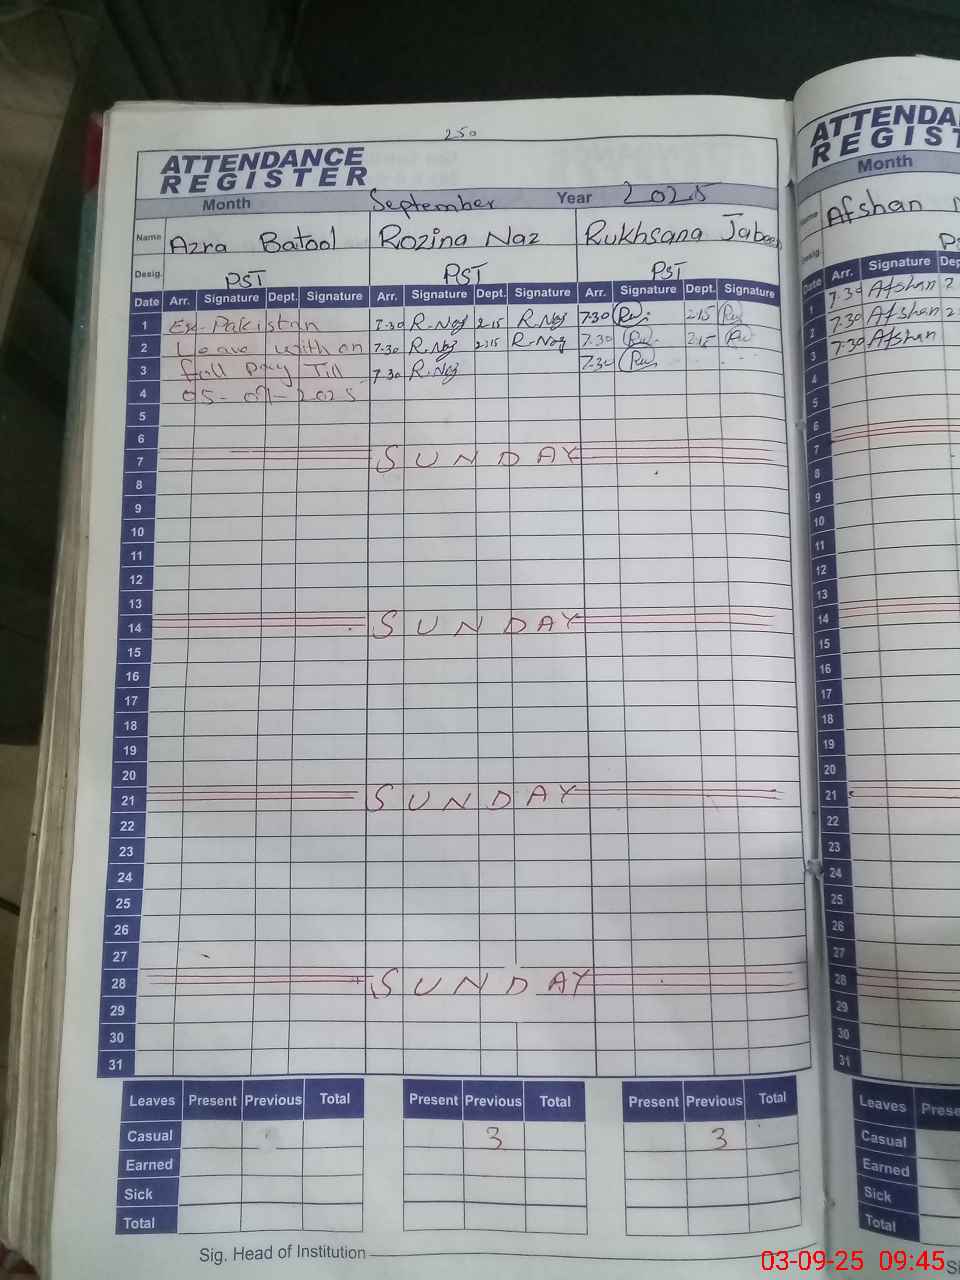 250
ATTENDANCE
REGISTER
Month September Year 2025
Name Azra Batool Rozina Naz Rukhsana Jabeen
Desig. PST PST PST
Date Arr. Signature Dept. Signature Arr. Signature Dept. Signature Arr. Signature Dept. Signature
1 Ex-Pakistan 7.30 R.Naz 2.15 R.Naz 7.30 Ru. 2.15 Ru
2 Leave with on 7.30 R.Naz 2.15 R.Naz 7.30 Ru. 2.15 Ru
3 full Pay Till 7.30 R.Naz 7.30 Ru
4 2025
5
6
7 SUNDAY
8
9
10
11
12
13
14 SUNDAY
15
16
17
18
19
20
21 SUNDAY
22
23
24
25
26
27
28 SUNDAY
29
30
31
Leaves Present Previous Total Present Previous Total Present Previous Total
Casual 3 3
Earned
Sick
Total
Sig. Head of Institution
ATTENDA
REGIST
Month
Name Afshan
Desig.
Date Arr. Signature Dep
1 7.30 Afshan 2
2 7.30 Afshan 2
3 7.30 Afshan
4
5
6
7
8
9
10
11
12
13
14
15
16
17
18
19
20
21
22
23
24
25
26
27
28
29
30
31
Leaves Prese
Casual
Earned
Sick
Total
03-09-25 09:45